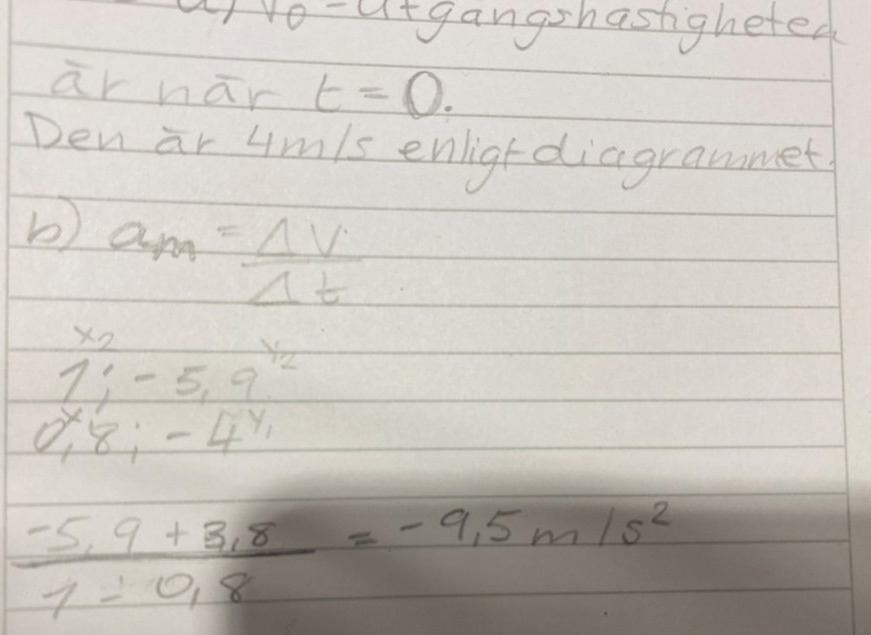 a) V0 - Utgångshastigheten
är när t = 0.
Den är 4m/s enligt diagrammet.
b) am = ΔV
Δt
x2 y2
1; -5,9
x1 y1
0,8; -4
-5,9 + 3,8 = -9,5 m/s²
1 - 0,8